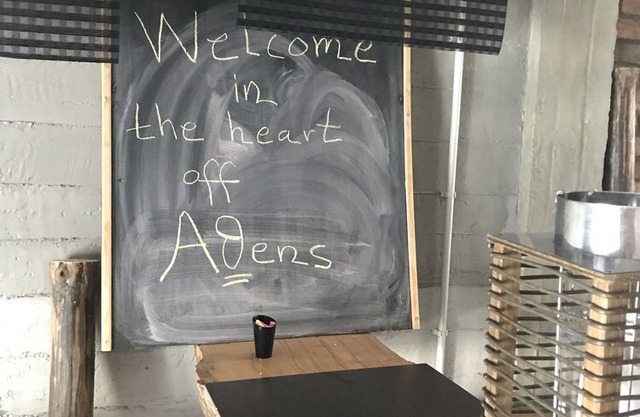 Welcome
in
the heart
off
Aθens